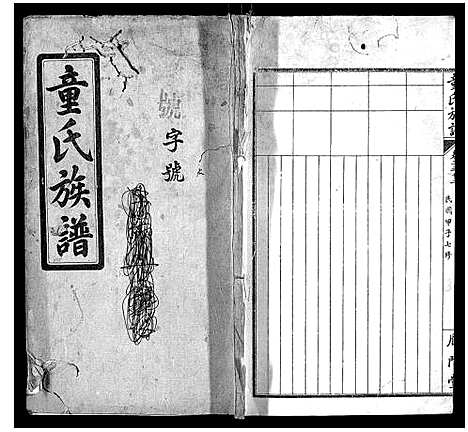 童氏族譜
號
字號
童氏族譜
民國甲子七修